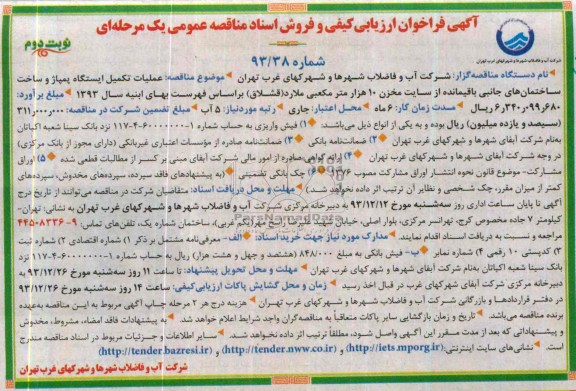 آگهی فراخوان ارزیابی‌کیفی و فروش اسناد مناقصه عمومی یک مرحله‌ای
نوبت دوم
شماره ۹۳/۳۸
شرکت آب و فاضلاب شهرها و شهرکهای غرب تهران
نام دستگاه مناقصه‌گزار: شرکت آب و فاضلاب شهرها و شهرکهای غرب تهران موضوع مناقصه: عملیات تکمیل ایستگاه پمپاژ و ساخت
ساختمان‌های جانبی باقیمانده از سایت مخزن ۱۰ هزار متر مکعبی ملارد(قشلاق) براساس فهرست بهای ابنیه سال ۱۳۹۳ مبلغ برآورد:
۶٫۳۴۰٫۶۸۰٫۰۹۹ ریال مدت زمان کار: ۶ ماه محل اعتبار: جاری رتبه موردنیاز: ۵ آب مبلغ تضمین شرکت در مناقصه: ۳۱۱٫۰۰۰٫۰۰۰
(سیصد و یازده میلیون) ریال بوده و به یکی از انواع ذیل می‌باشند: ۱) فیش واریزی به حساب شماره ۱-۶۰۰۰۰۰۰-۴-۱۱۷ نزد بانک سینا شعبه اکباتان
به‌نام شرکت آبفای شهرها و شهرکهای غرب تهران ۲) ضمانتنامه بانکی ۳) ضمانتنامه صادره از مؤسسات اعتباری غیربانکی (دارای مجوز از بانک مرکزی)
در وجه شرکت آبفای شهرها و شهرکهای غرب تهران ۴) ارائه گواهی صادره از امور مالی شرکت آبفای مبنی بر کسر از مطالبات قطعی شده ۵) اوراق
مشارکت- موضوع قانون نحوه انتشار اوراق مشارکت مصوب ۱۳۷۶ ۶) چک بانکی تضمینی (به پیشنهادهای فاقد سپرده، سپرده‌های مخدوش، سپرده‌های
کمتر از میزان مقرر، چک شخصی و نظایر آن ترتیب اثر داده نخواهد شد.) مهلت و محل دریافت اسناد: متقاضیان شرکت در مناقصه می‌توانند از تاریخ درج
آگهی تا پایان ساعت اداری روز سه‌شنبه مورخ ۹۳/۱۲/۱۲ به دبیرخانه مرکزی شرکت آب و فاضلاب شهرها و شهرکهای غرب تهران به نشانی: تهران-
کیلومتر ۷ جاده مخصوص کرج، تهرانسر مرکزی، بلوار اصلی، خیابان شماره یک، تلفن‌های تماس: ۹-۴۴۵۰۸۳۳۶
مراجعه و نسبت به دریافت اسناد اقدام نمایند. مدارک مورد نیاز جهت خرید اسناد: الف- معرفی‌نامه مشتمل بر ذکر ۱) شماره اقتصادی ۲) شماره ثبت
۳) کدپستی ۱۰ رقمی ۴) شماره نمابر ب- فیش بانکی به مبلغ ۸۴۸/۰۰۰ (هشتصد و چهل و هشت هزار) ریال به حساب شماره ۱-۶۰۰۰۰۰۰-۴-۱۱۷
بانک سینا شعبه اکباتان به‌نام شرکت آبفای شهرها و شهرکهای غرب تهران مهلت و محل تحویل پیشنهاد: تا ساعت ۱۱ روز سه‌شنبه مورخ ۹۳/۱۲/۲۶ به
دبیرخانه مرکزی شرکت آبفای شهرها و شهرکهای غرب در قبال اخذ رسید زمان و محل گشایش پاکات ارزیابی‌کیفی: ساعت ۱۴ روز سه‌شنبه مورخ ۹۳/۱۲/۲۶
در دفتر قراردادها و بازرگانی شرکت آب و فاضلاب شهرها و شهرکهای غرب تهران هزینه درج هر ۲ مرحله چاپ آگهی مربوط به این مناقصه به‌عهده
برنده مناقصه می‌باشد. تاریخ و زمان بازگشایی سایر پاکات متعاقباً به مناقصه‌گران واجد شرایط اعلام خواهد شد به پیشنهادات فاقد امضاء، مشروط، مخدوش
و پیشنهاداتی که بعد از مدت مقرر این آگهی واصل شود، مطلقاً ترتیب اثر داده نخواهد شد. سایر اطلاعات و جزئیات مربوط در اسناد مناقصه مندرج
است. نشانی‌های سایت اینترنتی: (http://iets.mporg.ir) و (http://tender.nww.co.ir) و (http://tender.bazresi.ir)
شرکت آب و فاضلاب شهرها و شهرکهای غرب تهران